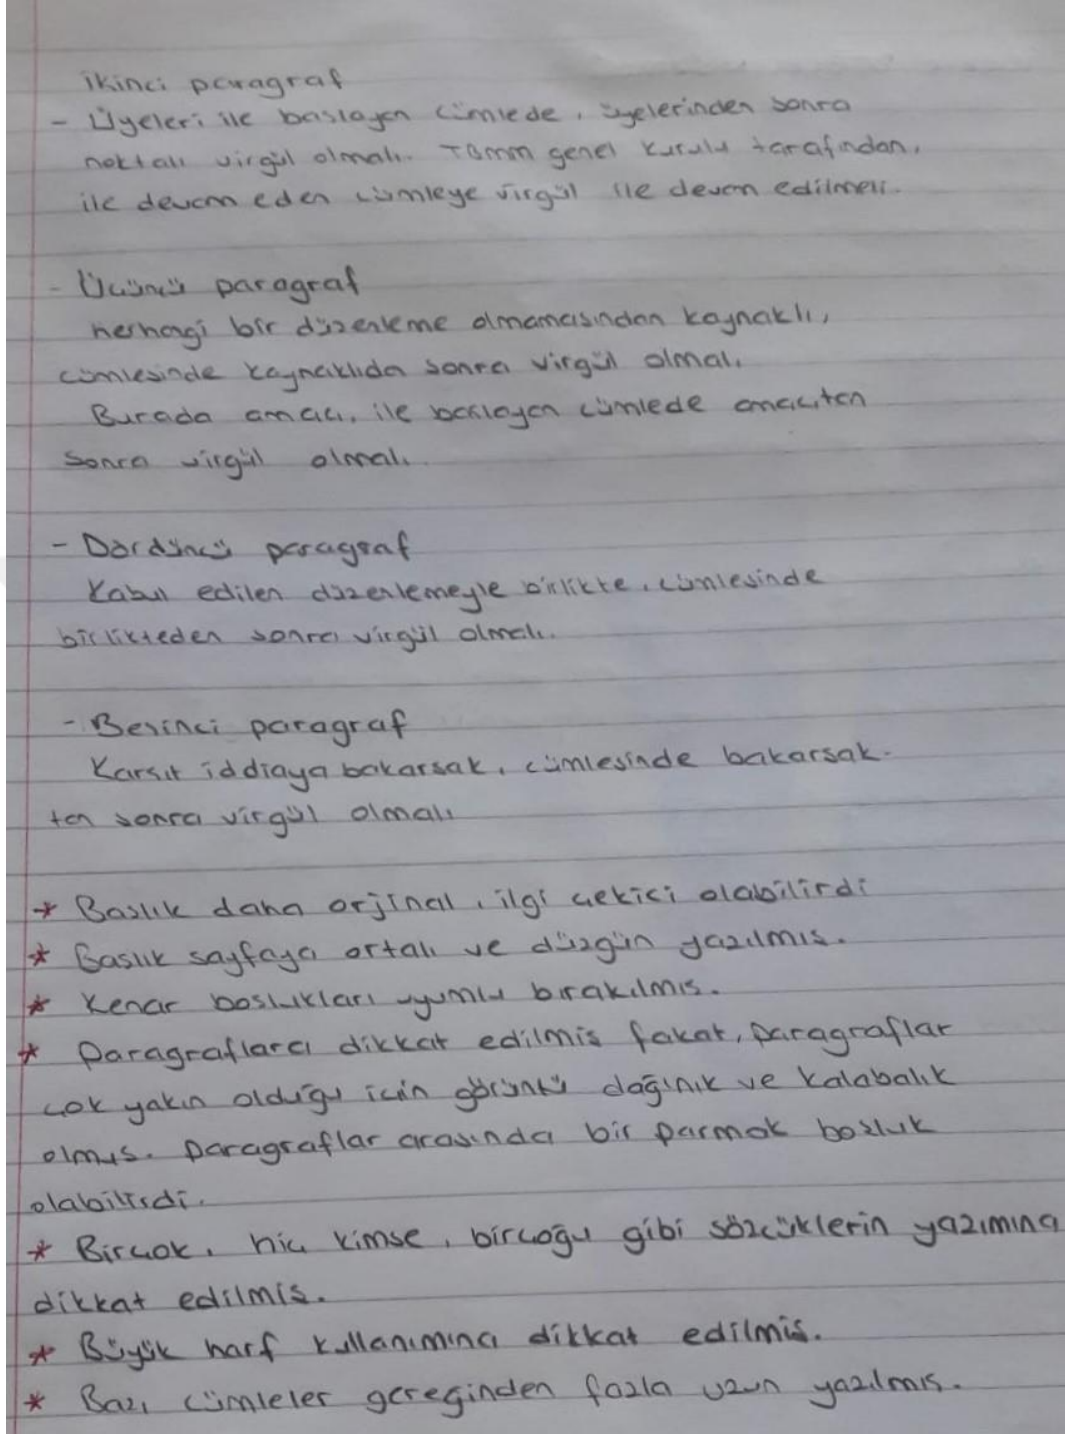 ikinci paragraf
- Üyeleri ile baslayan cümlede, üyelerinden sonra
noktalı virgül olmalı. TBMM genel kurulu tarafından,
ile devam eden cümleye virgül ile devam edilmeli.
- Üçüncü paragraf
herhagi bir düzenleme olmamasından kaynaklı,
cümlesinde kaynaklıda sonra virgül olmalı
Burada amacı, ile baslayan cümlede amacıtan
sonra virgül olmalı.
- Dördüncü paragraf
Kabul edilen düzenlemeyle birlikte, cümlesinde
birlikteden sonra virgül olmalı.
- Besinci paragraf
Karsıt iddiaya bakarsak, cümlesinde bakarsak-
tan sonra virgül olmalı
* Baslık daha orjinal, ilgi çekici olabilirdi
* Baslık sayfaya ortalı ve düzgün yazılmıs.
* Kenar boslukları uyumlu bırakılmıs.
* Paragraflara dikkat edilmis fakat, paragraflar
çok yakın olduğu için görüntü dağınık ve kalabalık
olmus. Paragraflar arasında bir parmak bosluk
olabilirdi.
* Birçok, hiç kimse, birçoğu gibi sözcüklerin yazımına
dikkat edilmis.
* Büyük harf kullanımına dikkat edilmis.
* Bazı cümleler gereginden fazla uzun yazılmıs.